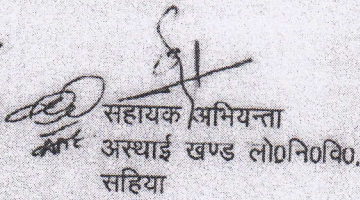 सहायक अभियन्ता
अस्थाई खण्ड लो0नि0वि0.
सहिया